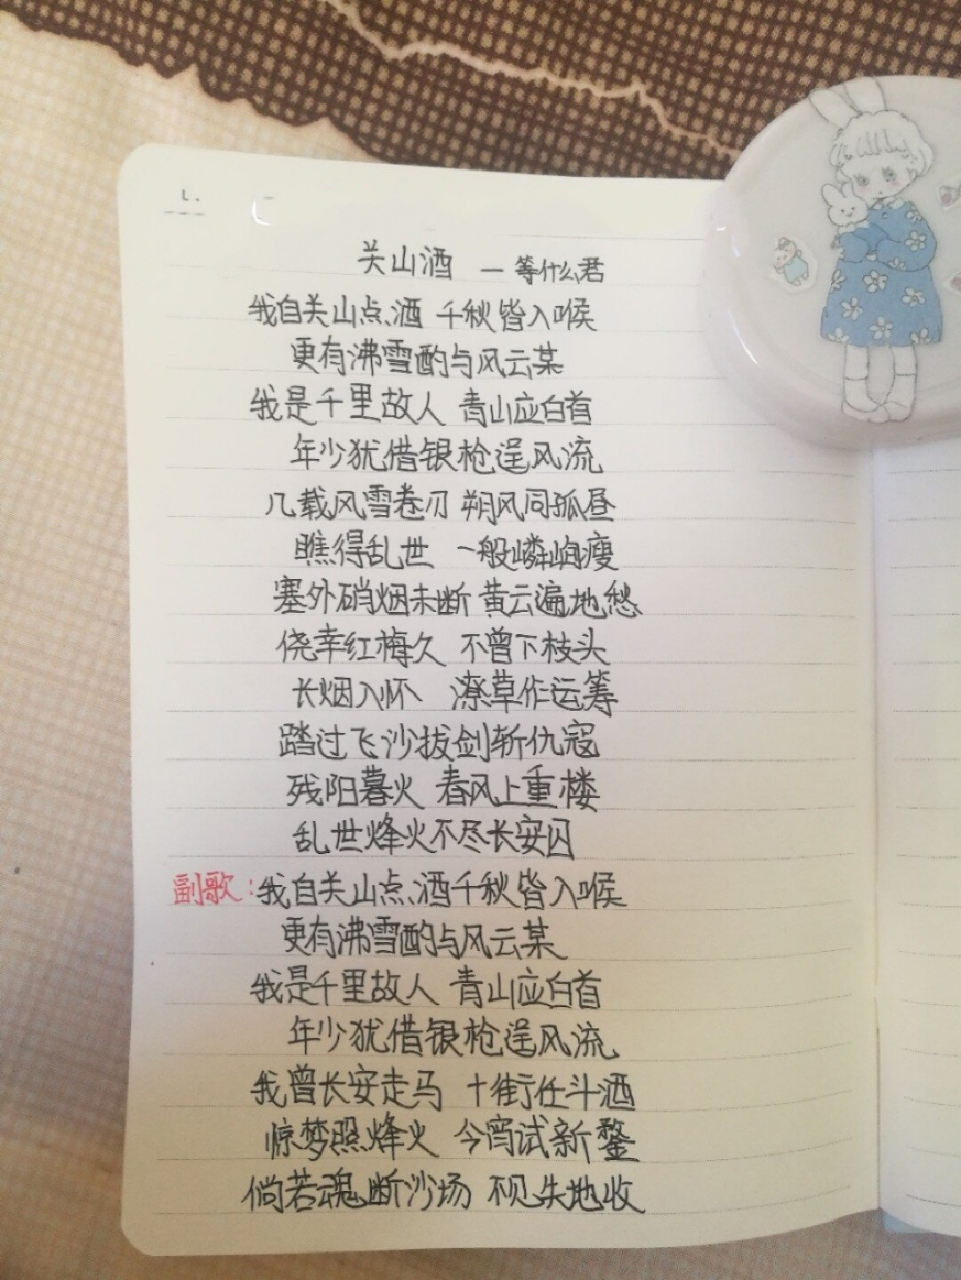 关山酒 — 等什么君
我自关山点酒 千秋皆入喉
更有沸雪酌与风云某
我是千里故人 青山应白首
年少犹借银枪逞风流
几载风雪卷刃 朔风同孤昼
瞧得乱世 一般嶙峋瘦
塞外硝烟未断 黄云遍地愁
侥幸红梅久 不曾下枝头
长烟入怀 潦草作运筹
踏过飞沙拔剑斩仇寇
残阳暮火 春风上重楼
乱世烽火不尽长安囚
副歌:我自关山点酒千秋皆入喉
更有沸雪酌与风云某
我是千里故人 青山应白首
年少犹借银枪逞风流
我曾长安走马 十街任斗酒
惊梦照烽火 今宵试新鍪
倘若魂断沙场 不见失地收